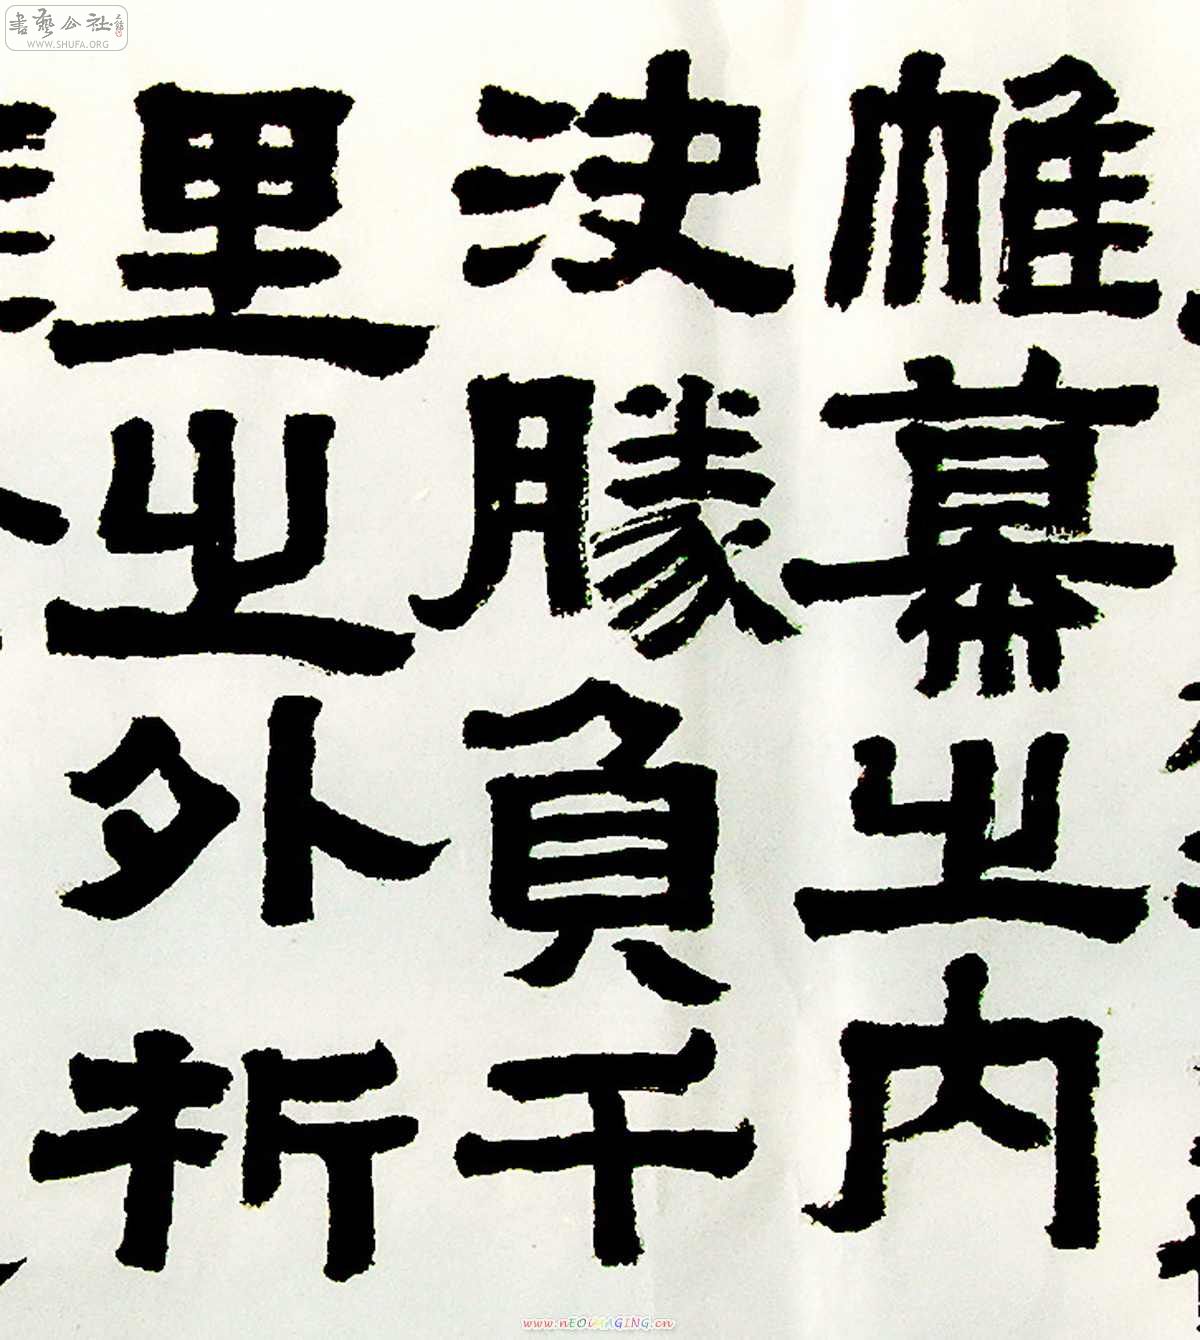 帷幕之内
決勝負千
里之外析
書藝公社
WWW.SHUFA.ORG
www.nEOiMAGING.cn